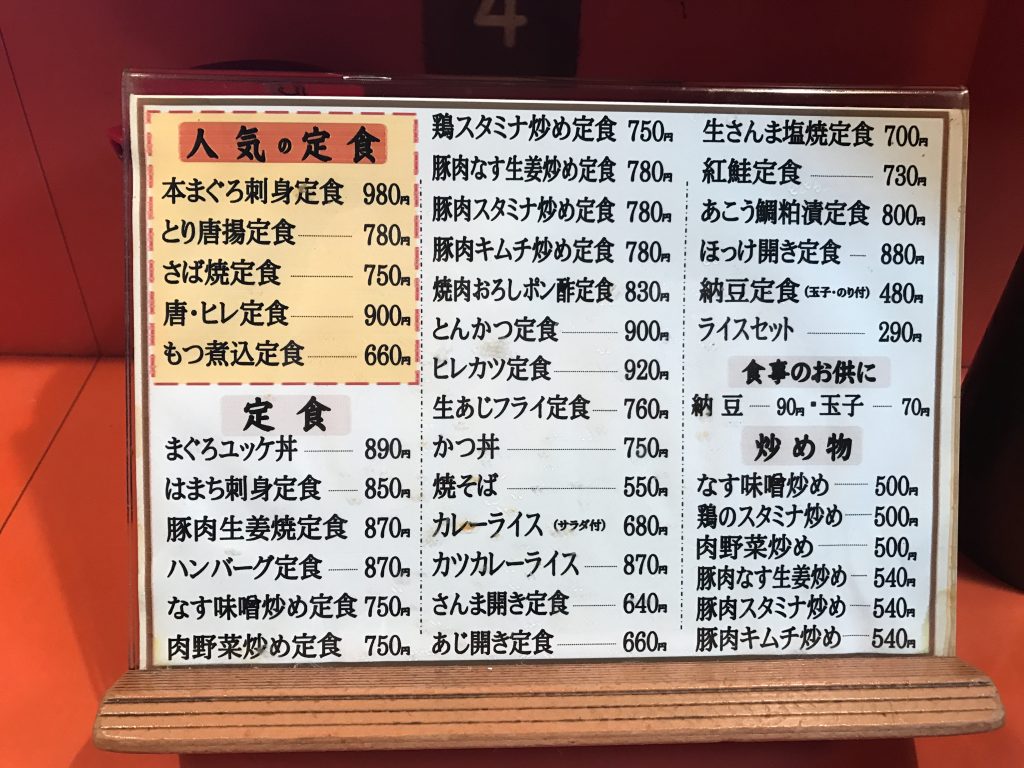 4
人気の定食
本まぐろ刺身定食 980円
とり唐揚定食 780円
さば焼定食 750円
唐・ヒレ定食 900円
もつ煮込定食 660円
定食
まぐろユッケ丼 890円
はまち刺身定食 850円
豚肉生姜焼定食 870円
ハンバーグ定食 870円
なす味噌炒め定食 750円
肉野菜炒め定食 750円
鶏スタミナ炒め定食 750円
豚肉なす生姜炒め定食 780円
豚肉スタミナ炒め定食 780円
豚肉キムチ炒め定食 780円
焼肉おろしポン酢定食 830円
とんかつ定食 900円
ヒレカツ定食 920円
生あじフライ定食 760円
かつ丼 750円
焼そば 550円
カレーライス (サラダ付) 680円
カツカレーライス 870円
さんま開き定食 640円
あじ開き定食 660円
生さんま塩焼定食 700円
紅鮭定食 730円
あこう鯛粕漬定食 800円
ほっけ開き定食 880円
納豆定食 (玉子・のり付) 480円
ライスセット 290円
食事のお供に
納豆 90円・玉子 70円
炒め物
なす味噌炒め 500円
鶏のスタミナ炒め 500円
肉野菜炒め 500円
豚肉なす生姜炒め 540円
豚肉スタミナ炒め 540円
豚肉キムチ炒め 540円